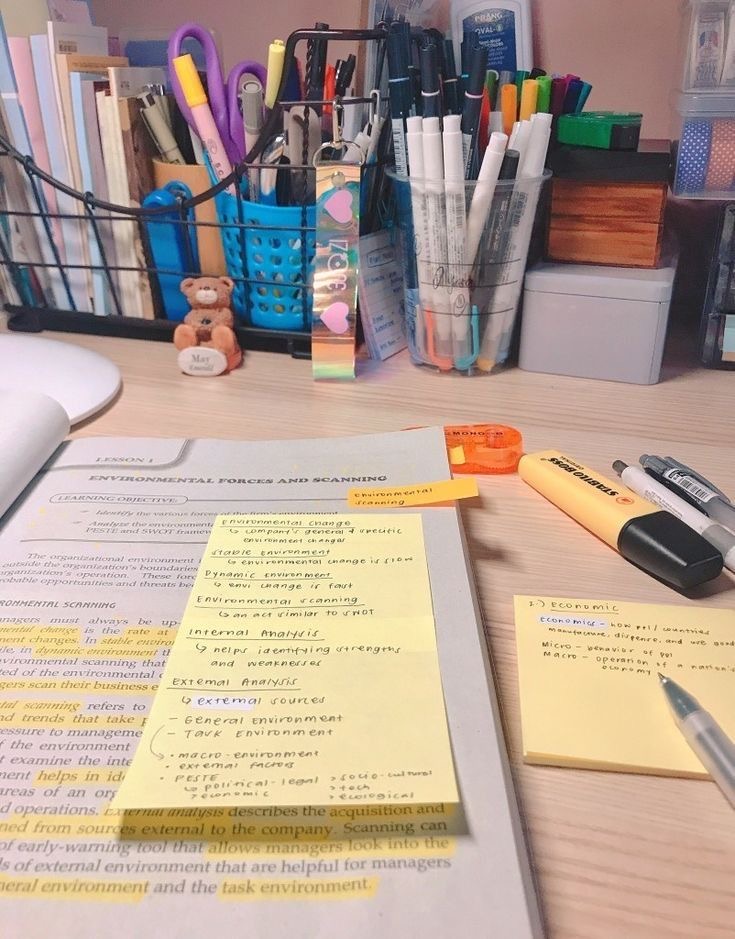 PRANG
OVAL-8
May
Emerald
LESSON 1
ENVIRONMENTAL FORCES AND SCANNING
LEARNING OBJECTIVE:
Identify the various forces of the firm's environment
Analyze the environment
PESTE and SWOT
The organizational environment
outside the organization's boundaries
organization's operation. These
probable opportunities and threats
environmental scanning
Environmental change
↳ company's general & specific
environment changes
Stable Environment
↳ environmental change is slow
Dynamic Environment
↳ envi change is fast
Environmental scanning
↳ an act similar to SWOT
Internal Analysis
↳ helps identifying strengths
and weaknesses
External Analysis
↳ external sources
- General Environment
- Task Environment
• macro-environment
• external factors
• PESTE
↳ political-legal > socio-cultural
> economic > tech
> ecological
MONO
STABILO BOSS
ORIGINAL
2.) Economic
Economics - how ppl / countries
manufacture, dispense, and use good
Micro - behavior of ppl
Macro - operation of a nation's
economy
RONMENTAL SCANNING
nagers must always be up-
mental change is the rate at
ment changes. In stable enviro
le, in dynamic environment
vironmental scanning that
ted of the environmental
gers scan their business
tal scanning refers to
nd trends that take
essure to manageme
of the environment
t examine the inte
ment helps in id
areas of an org
d operations. External analysis describes the acquisition and
ned from sources external to the company. Scanning can
of early-warning tool that allows managers look into the
ls of external environment that are helpful for managers
neral environment and the task environment.